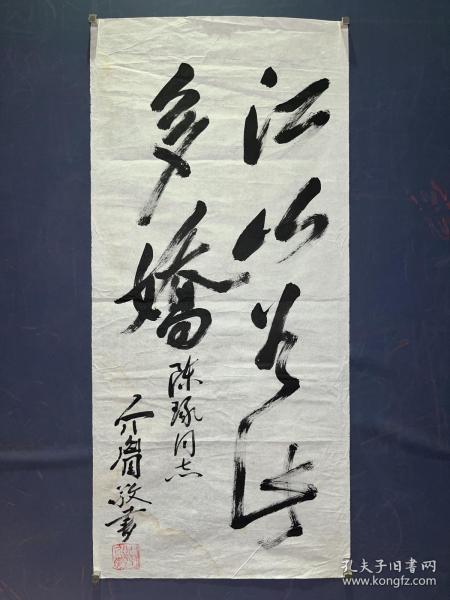 江山如此
多娇
陈琢同志
介眉敬书
孔夫子旧书网
www.kongfz.com